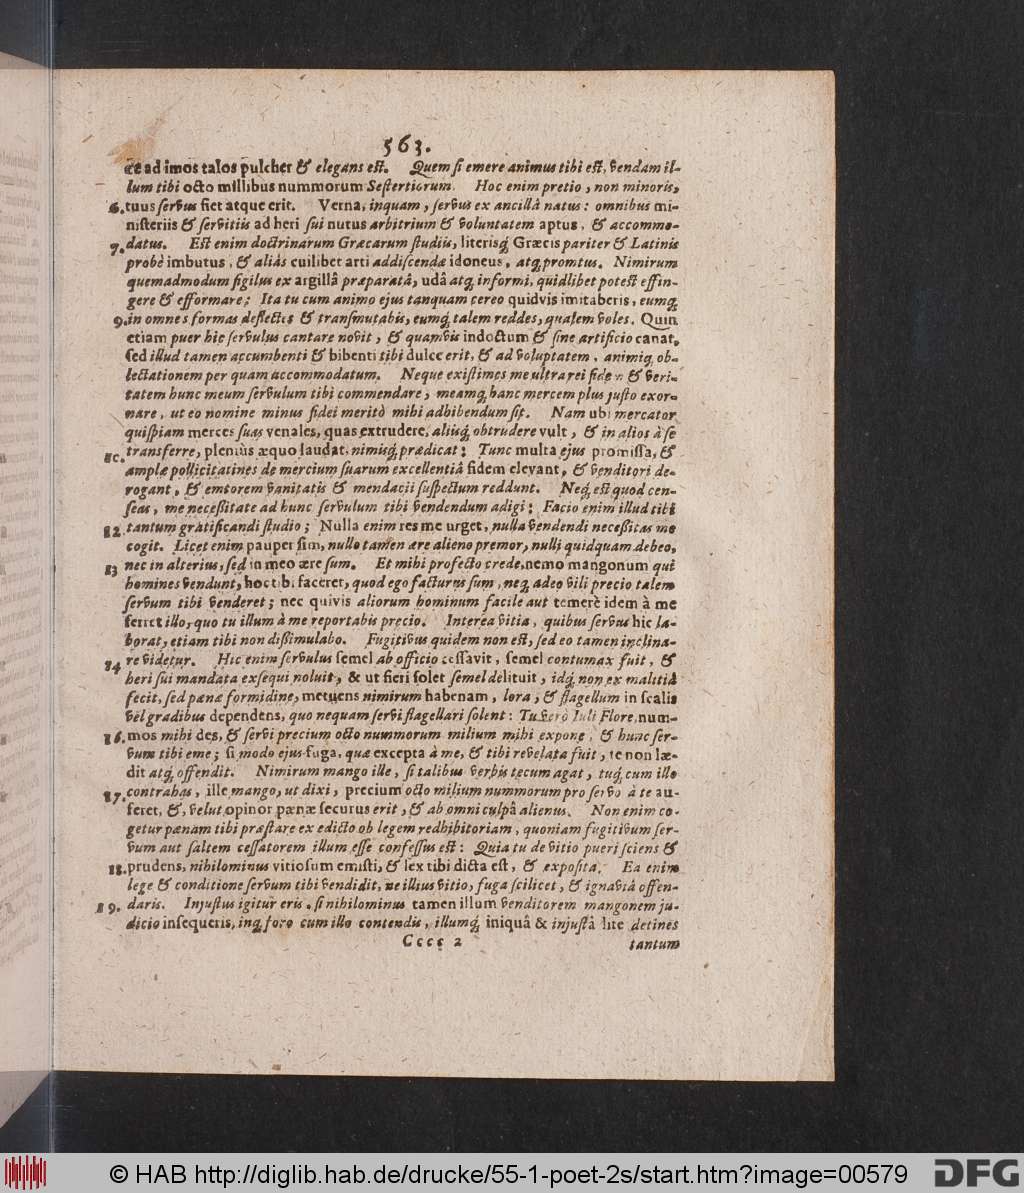 563.
& ad imos talos pulcher & elegans est. Quem si emere animus tibi est, vendam il-
lum tibi octo millibus nummorum Sestertiorum. Hoc enim pretio, non minoris,
6. tuus servus fiet atque erit. Verna, inquam, servus ex ancillâ natus: omnibus mi-
nisteriis & servitiis ad heri sui nutus arbitrium & voluntatem aptus, & accommo-
7. datus. Est enim doctrinarum Græcarum studiis, literisq; Græcis pariter & Latinis
probè imbutus, & aliàs cuilibet arti addiscendæ idoneus, atq; promtus. Nimirum
quemadmodum figilus ex argillâ præparatâ, udâ atq; informi, quidlibet potest effin-
gere & efformare; Ita tu cum animo ejus tanquam cereo quidvis imitaberis, eumq;
9. in omnes formas deflectes & transmutabis, eumq; talem reddes, qualem voles. Quin
etiam puer hic servulus cantare novit, & quamvis indoctum & sine artificio canat,
sed illud tamen accumbenti & bibenti tibi dulce erit, & ad voluptatem, animiq; ob-
lectationem per quam accommodatum. Neque existimes me ultra rei fidem & veri-
tatem hunc meum servulum tibi commendare, meamq; hanc mercem plus justo exor-
nare, ut eo nomine minus fidei meritò mihi adhibendum sit. Nam ubi mercator
quispiam merces suas venales, quas extrudere, aliisq; obtrudere vult, & in alios à se
10. transferre, pleniùs æquo laudat, nimisq; prædicat: Tunc multa ejus promissa, &
amplæ pollicitatines de mercium suarum excellentiâ fidem elevant, & venditori de-
rogant, & emtorem vanitatis & mendacii suspectum reddunt. Neq; est quod cen-
seas, me necessitate ad hunc servulum tibi vendendum adigi: Facio enim illud tibi
12. tantum gratificandi studio; Nulla enim res me urget, nulla vendendi necessitas me
cogit. Licet enim pauper sim, nullo tamen ære alieno premor, nulli quidquam debeo,
13 nec in alterius, sed in meo ære sum. Et mihi profecto crede, nemo mangonum qui
homines vendunt, hoc tibi faceret, quod ego facturus sum, neq; adeo vili precio talem
servum tibi venderet; nec quivis aliorum hominum facile aut temerè idem à me
ferret illo, quo tu illum à me reportabis precio. Interea vitia, quibus servus hic la-
borat, etiam tibi non dissimulabo. Fugitivus quidem non est, sed eo tamen inclina-
14 re videtur. Hic enim servulus semel ab officio cessavit, semel contumax fuit, &
heri sui mandata exsequi noluit, & ut fieri solet semel delituit, idq; non ex malitiâ
fecit, sed pænæ formidine, metuens nimirum habenam, lora, & flagellum in scalis
vel gradibus dependens, quo nequam servi flagellari solent: Tu verò Iuli Flore, num-
16. mos mihi des, & servi precium octo nummorum milium mihi expone, & hunc ser-
vum tibi eme; si modo ejus fuga, quæ excepta à me, & tibi revelata fuit, te non læ-
dit atq; offendit. Nimirum mango ille, si talibus verbis tecum agat, tuq; cum illo
17. contrahas, ille mango, ut dixi, precium octo milium nummorum pro servo à te au-
feret, &, velut opinor pænæ securus erit, & ab omni culpâ alienus. Non enim co-
getur pænam tibi præstare ex edicto ob legem redhibitoriam, quoniam fugitivum ser-
vum aut saltem cessatorem illum esse confessus est: Quia tu de vitio pueri sciens &
18. prudens, nihilominus vitiosum emisti, & lex tibi dicta est, & exposita. Ea enim
lege & conditione servum tibi vendidit, ne illius vitio, fuga scilicet, & ignaviâ offen-
19. daris. Injustus igitur eris, si nihilominus tamen illum venditorem mangonem ju-
dicio insequeris, inq; foro cum illo contendis, illumq; iniquâ & injustâ lite detines
Cccc 2 tantum
© HAB http://diglib.hab.de/drucke/55-1-poet-2s/start.htm?image=00579 DFG